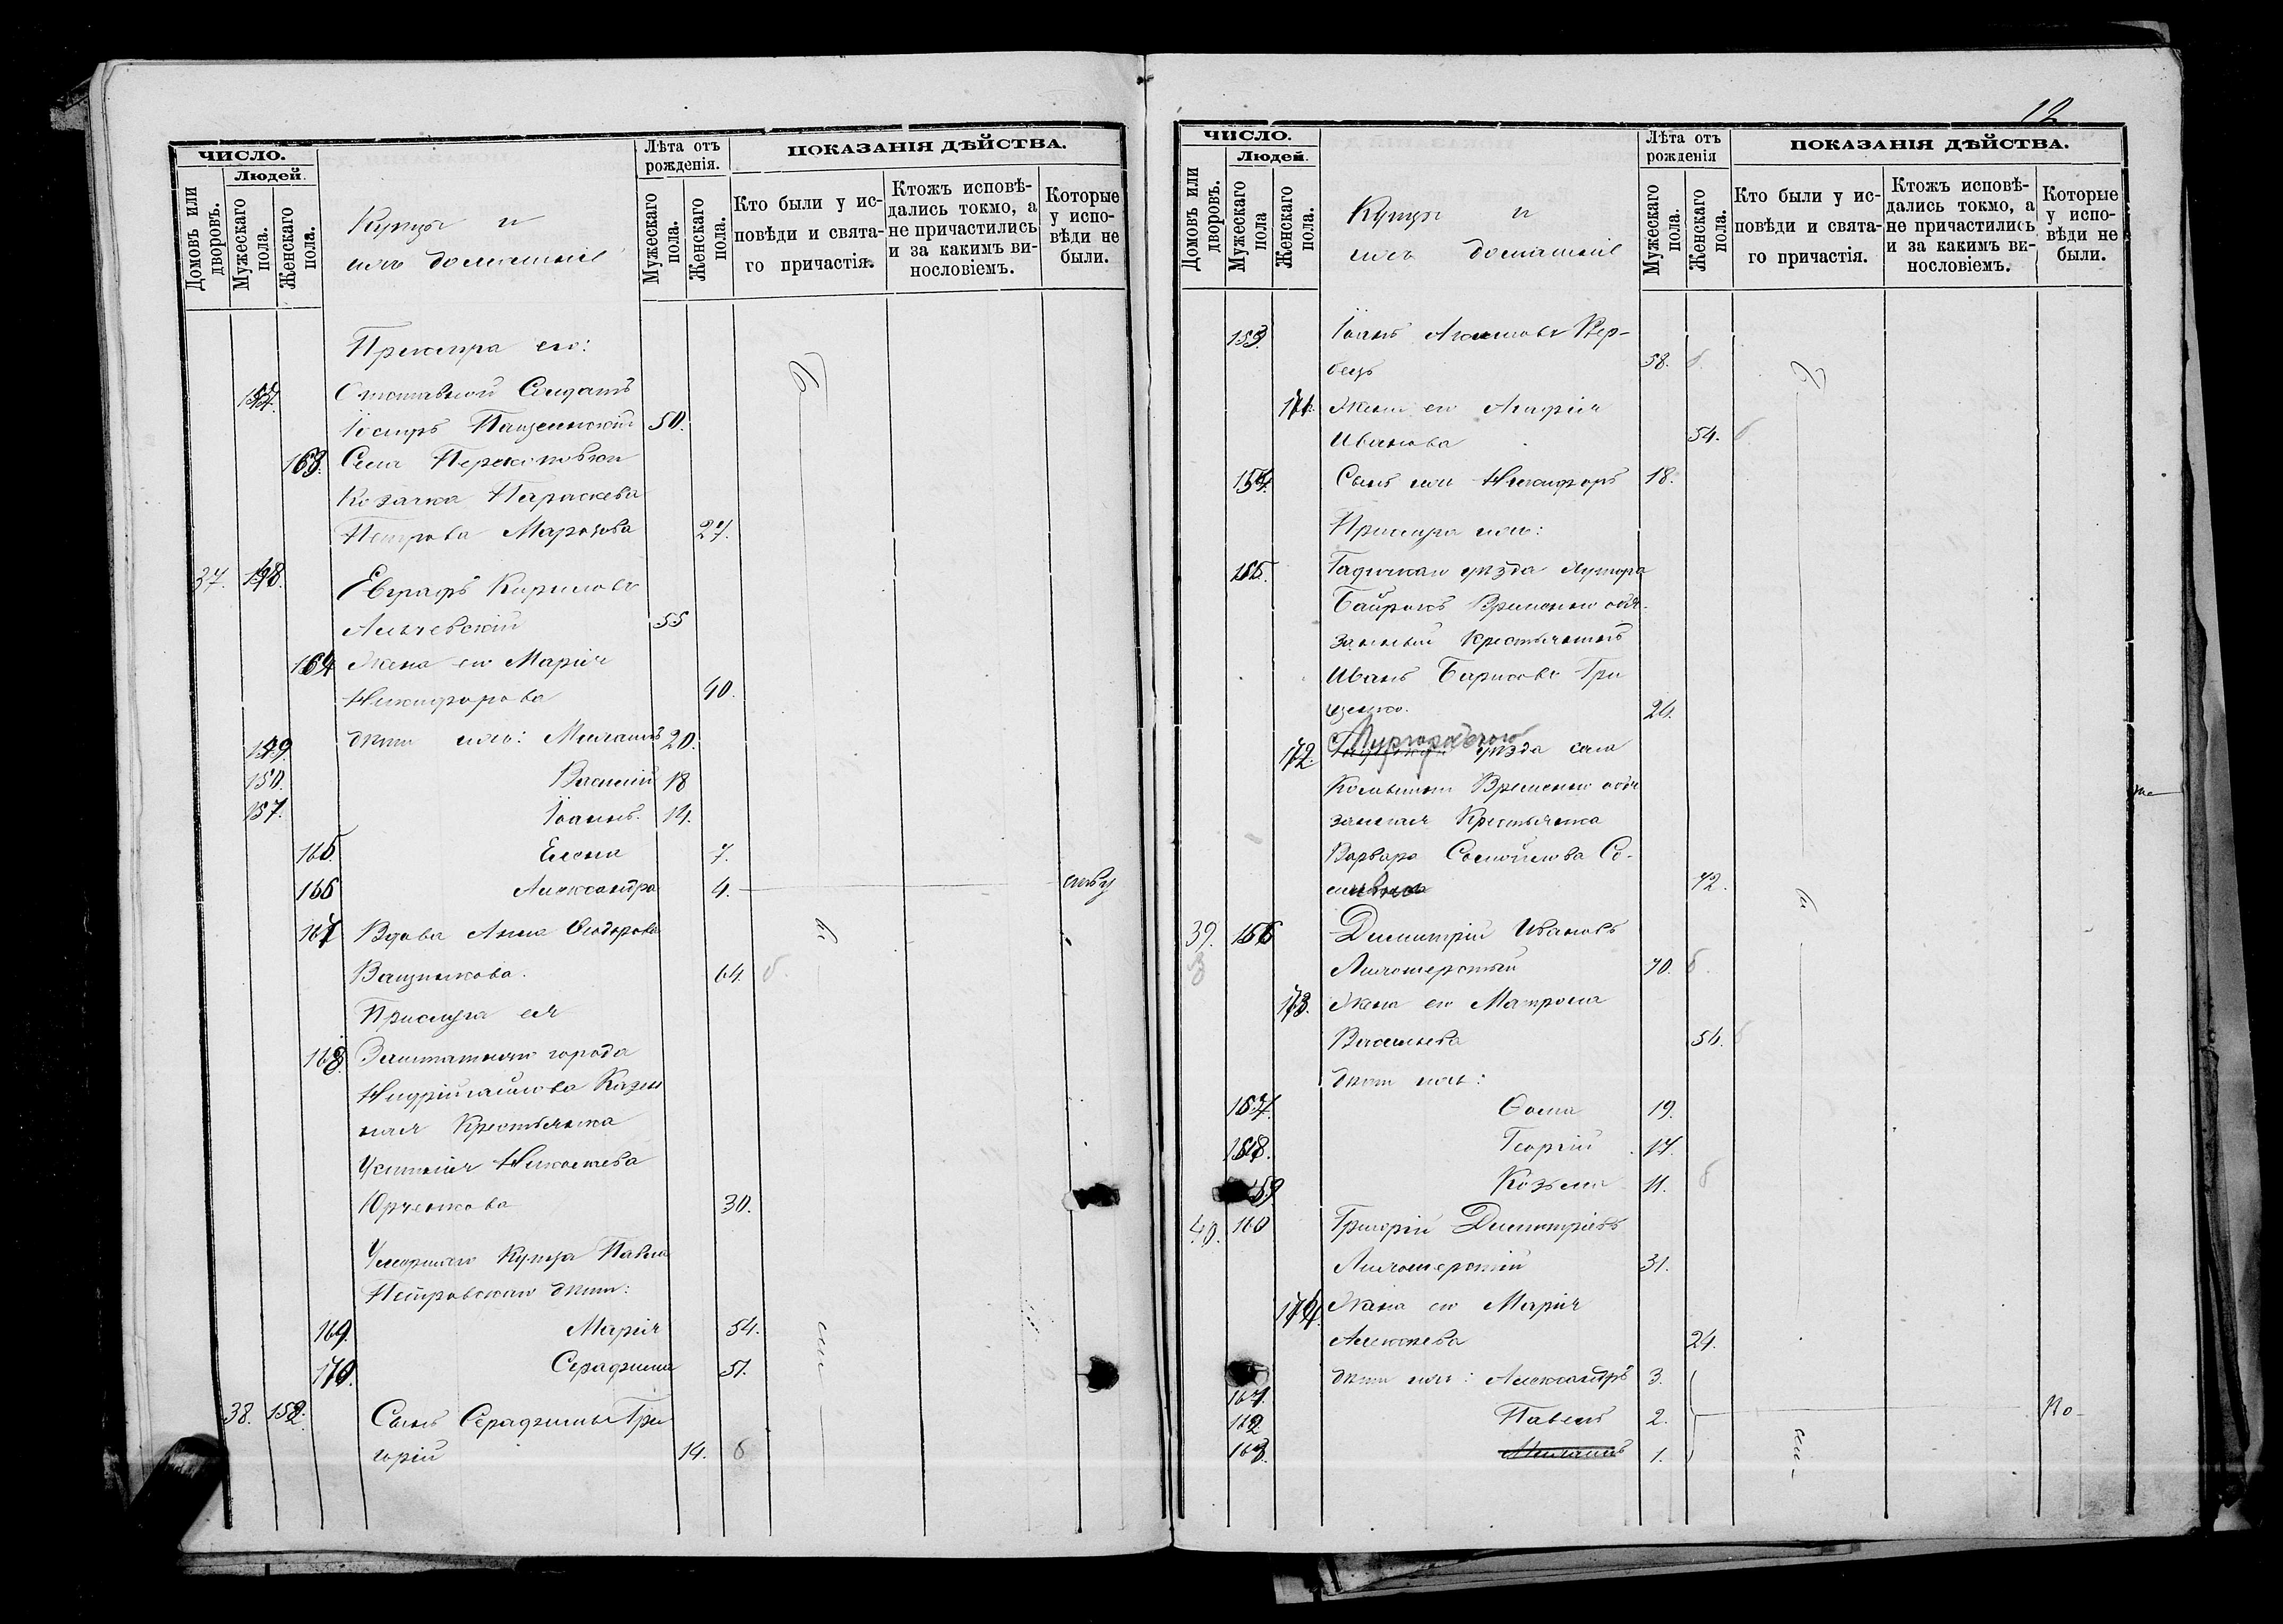 ЧИСЛО.
Людей.
Домовъ или дворовъ.
Мужескаго пола.
Женскаго пола.
Купцы и
ихъ домашніе
Лѣта отъ рожденія.
Мужескаго пола.
Женскаго пола.
ПОКАЗАНІЯ ДѢЙСТВА.
Кто были у исповѣди и святаго причастія.
Ктожъ исповѣдались токмо, а не причастились и за какимъ винословіемъ.
Которые у исповѣди не были.
Прислуга его:
Отставной Солдатъ
Іосифъ 50.
163. Села
Козачка Параскева
Петрова 27.
37. 148. Евграфъ Кириловъ
Алчевскій 55
164 Жена его Марія
Никифорова 40.
149. дѣти ихъ: Михаилъ 20.
150. Василій 18
151. Іоаннъ. 14.
165. Елена 7.
166 Александра 4.
167 Вдова Анна Ѳеодорова
64. б.
Прислуга ея
168. Заштатнаго города
Недригайлова Казен
ная Крестьянка
Устинія
Юрченкова 30.
Умершаго Купца Павла
Петровскаго дѣти:
169. Марія 54.
170. Серафима 51.
38. 152. Сынъ Серафимы Гри
горій 14. б
12
ЧИСЛО.
Людей.
Домовъ или дворовъ.
Мужескаго пола
Женскаго пола.
Купцы и
ихъ домашніе
Лѣта отъ рожденія
Мужескаго пола.
Женскаго пола.
ПОКАЗАНІЯ ДѢЙСТВА.
Кто были у исповѣди и святаго причастія.
Ктожъ исповѣдались токмо, а не причастились и за какимъ винословіемъ.
Которые у исповѣди не были.
153. Іоаннъ Вер-
бецъ 58. б.
171. Жена его Агафія
Иванова 54. б.
154. Сынъ ихъ Никифоръ 18.
Прислуга ихъ:
155. Гадячкаго уѣзда хутора
Байракъ Временно обя-
занный Крестьянинъ
Иванъ Борисовъ Гри
ценко. 26.
172. Миргородского уѣзда села
Временно обя
занная Крестьянка
Варвара Самойлова Со-
42.
39. 156 Димитрій Ивановъ
Лихошерстый 70. б.
173. Жена его Матрона
Васильева 56. б
дѣти ихъ:
157. Ѳома 19.
158. Георгій 17.
159 Козьма 11. б
40. 160 Григорій Димитріевъ
Лихошерстый 31.
174. Жена его Марія
Алексѣева 24.
161. дѣти ихъ: Александръ 3.
162 Павелъ 2.
163. Михаилъ 1.